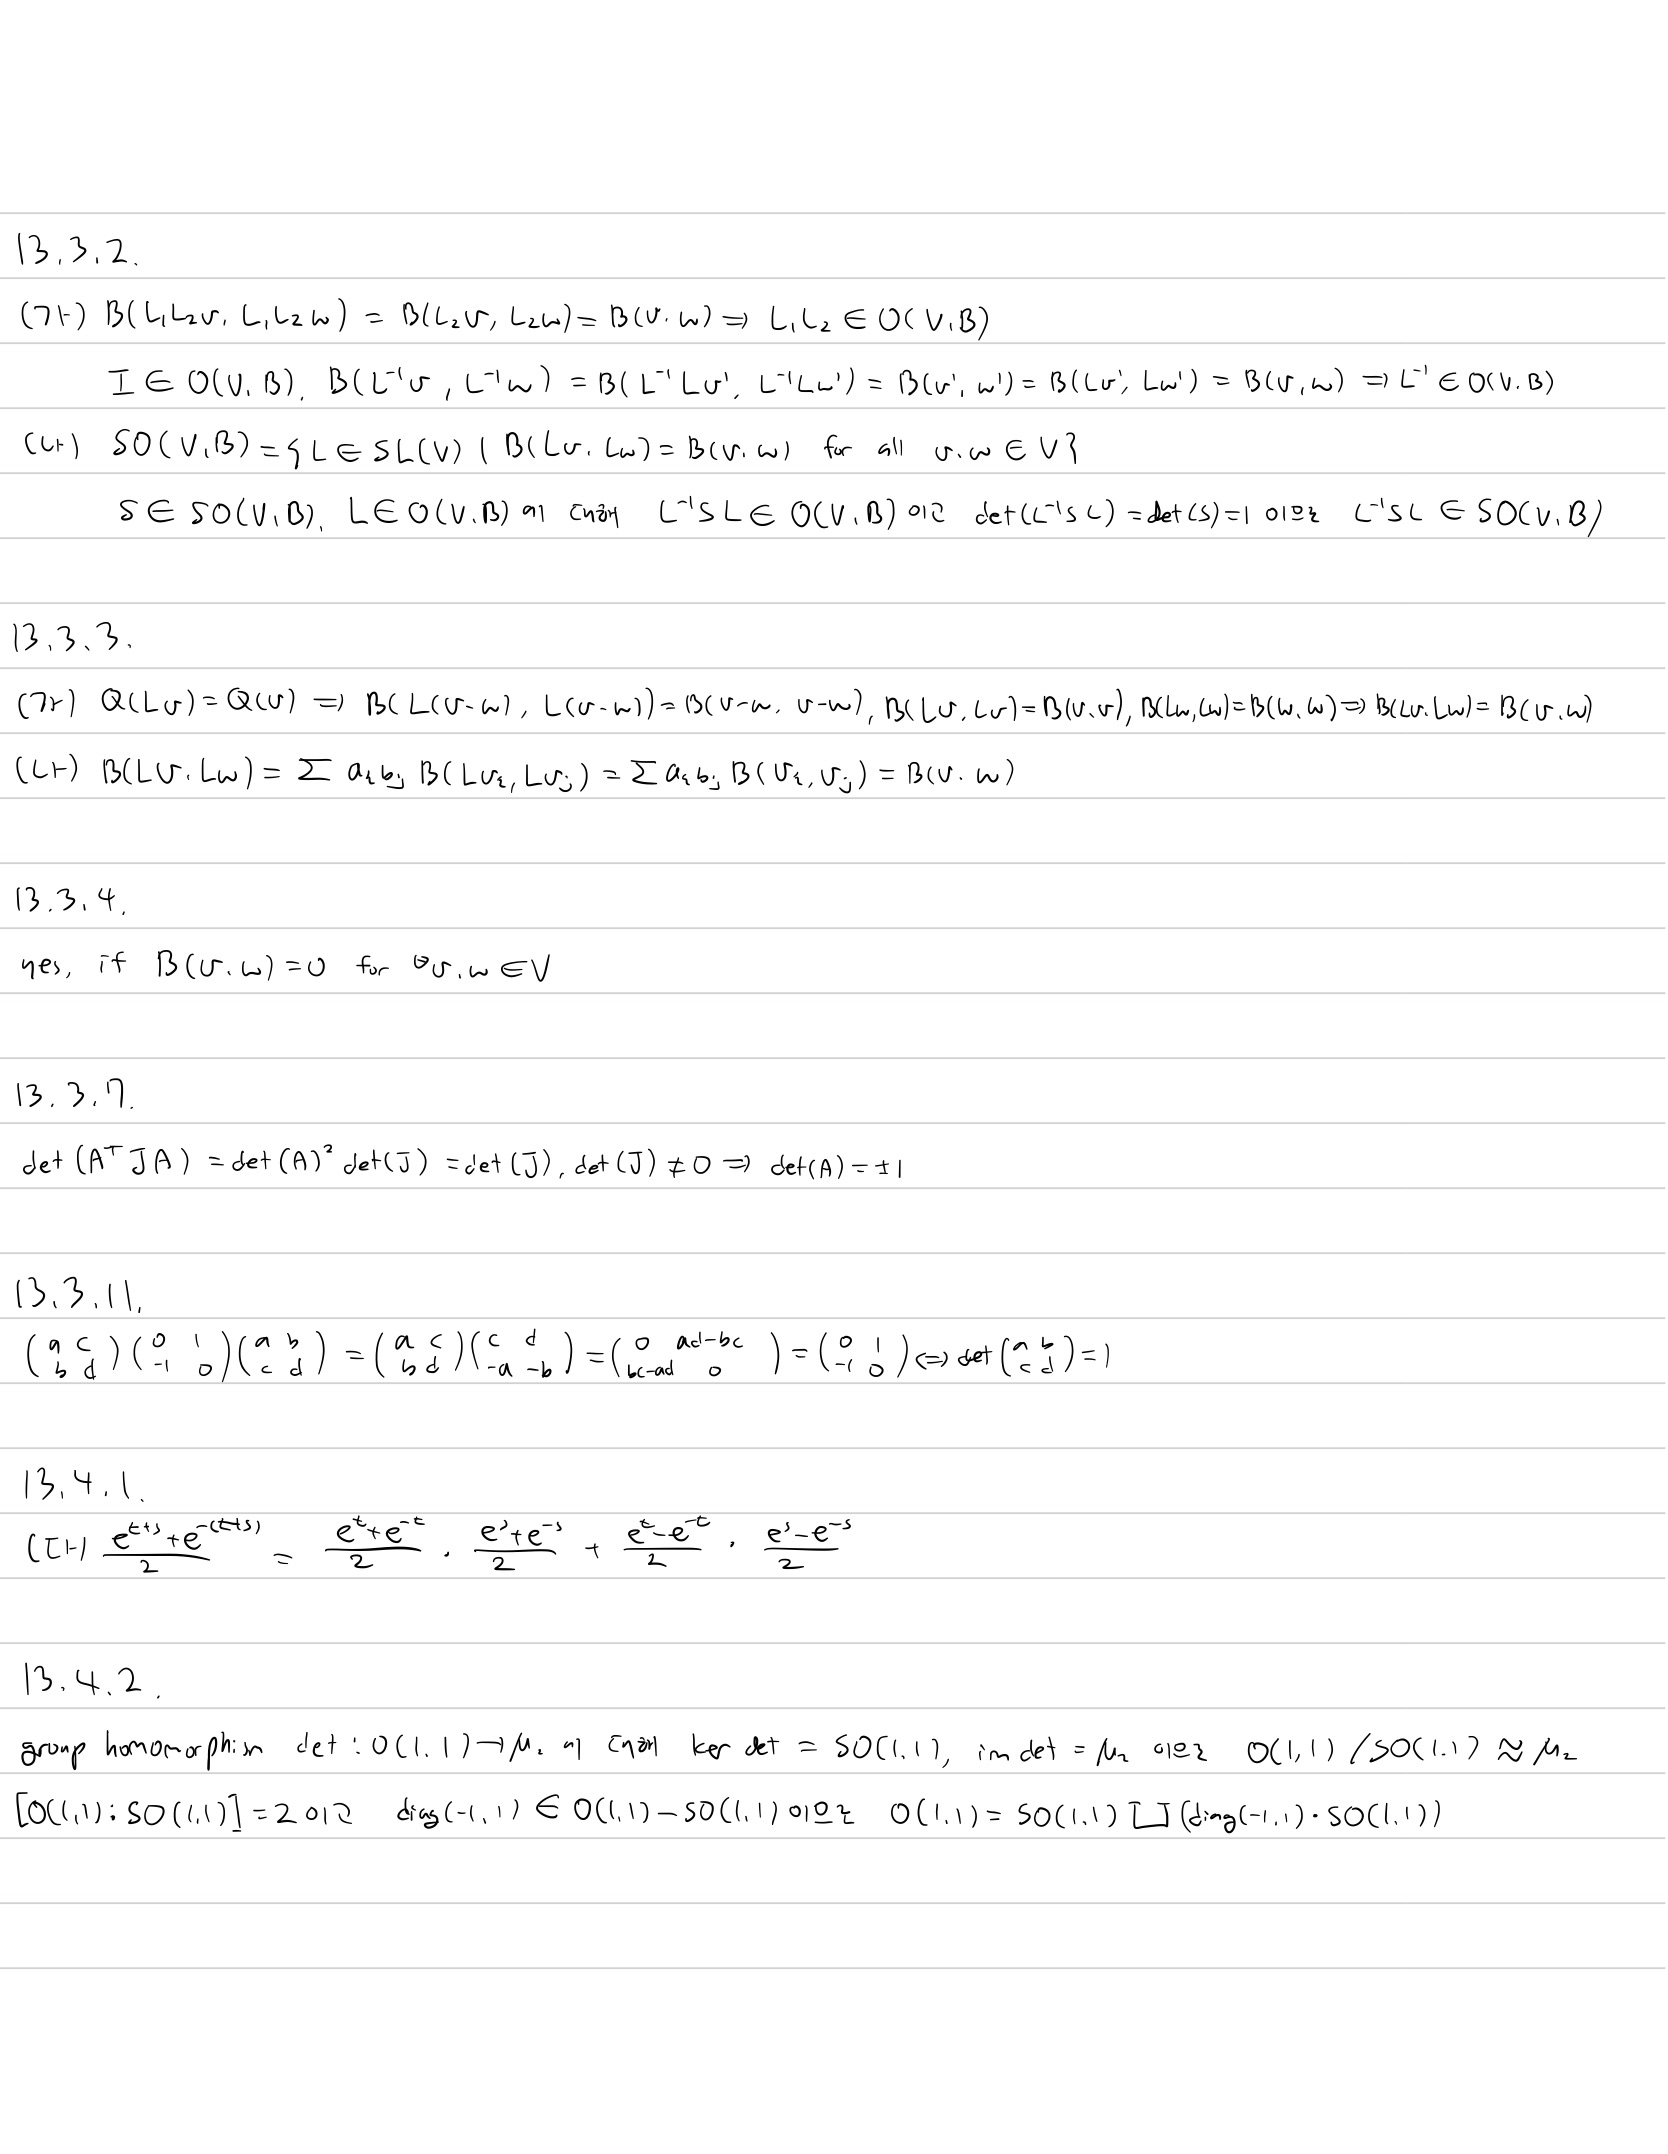 13.3.2.
(가) B(L₁L₂v, L₁L₂w) = B(L₂v, L₂w) = B(v, w) ⇒ L₁L₂ ∈ O(V, B)
I ∈ O(V, B), B(L⁻¹v, L⁻¹w) = B(L⁻¹Lv', L⁻¹Lw') = B(v', w') = B(Lv', Lw') = B(v, w) ⇒ L⁻¹ ∈ O(V, B)
(나) SO(V, B) = { L ∈ SL(V) | B(Lv, Lw) = B(v, w) for all v, w ∈ V }
S ∈ SO(V, B), L ∈ O(V, B) 에 대해 L⁻¹SL ∈ O(V, B) 이고 det(L⁻¹SL) = det(S) = 1 이므로 L⁻¹SL ∈ SO(V, B)
13.3.3.
(가) Q(Lv) = Q(v) ⇒ B(L(v-w), L(v-w)) = B(v-w, v-w), B(Lv, Lv) = B(v, v), B(Lw, Lw) = B(w, w) ⇒ B(Lv, Lw) = B(v, w)
(나) B(Lv, Lw) = Σ aᵢbⱼ B(Lvᵢ, Lvⱼ) = Σ aᵢbⱼ B(vᵢ, vⱼ) = B(v, w)
13.3.4.
yes, if B(v, w) = 0 for ∀v, w ∈ V
13.3.7.
det(AᵀJA) = det(A)² det(J) = det(J), det(J) ≠ 0 ⇒ det(A) = ±1
13.3.11.
(a c; b d)(0 1; -1 0)(a b; c d) = (a c; b d)(c d; -a -b) = (0 ad-bc; bc-ad 0) = (0 1; -1 0) ⇔ det(a b; c d) = 1
13.4.1.
(다) (e^{t+s}+e^{-(t+s)})/2 = (e^t+e^{-t})/2 · (e^s+e^{-s})/2 + (e^t-e^{-t})/2 · (e^s-e^{-s})/2
13.4.2.
group homomorphism det : O(1,1) → μ₂ 에 대해 ker det = SO(1,1), im det = μ₂ 이므로 O(1,1)/SO(1,1) ≈ μ₂
[O(1,1) : SO(1,1)] = 2 이고 diag(-1,1) ∈ O(1,1) - SO(1,1) 이므로 O(1,1) = SO(1,1) ⨆ (diag(-1,1)·SO(1,1))